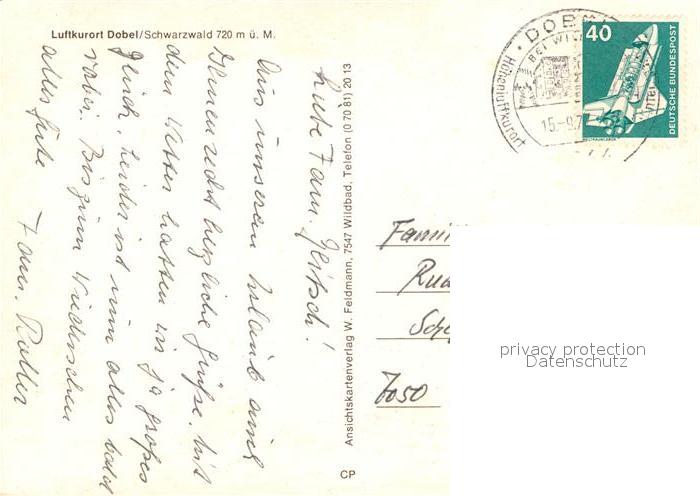 Luftkurort Dobel/Schwarzwald 720 m ü. M.
Liebe Fam. !
Aus unserem Urlaub einmal
Ihnen recht herzliche Grüße. Mit
dem Wetter hatten wir ja großes
Glück, leider ist nun alles bald
vorbei. Bis zum Wiedersehen
alles Gute Fam.
Ansichtskartenverlag W. Feldmann, 7547 Wildbad, Telefon (0 70 81) 20 13
CP
DOBEL
BEI WILDBAD
Höhenluftkurort
15.-9.7
40
DEUTSCHE BUNDESPOST
Fami
Rud
Sch
7050
privacy protection
Datenschutz